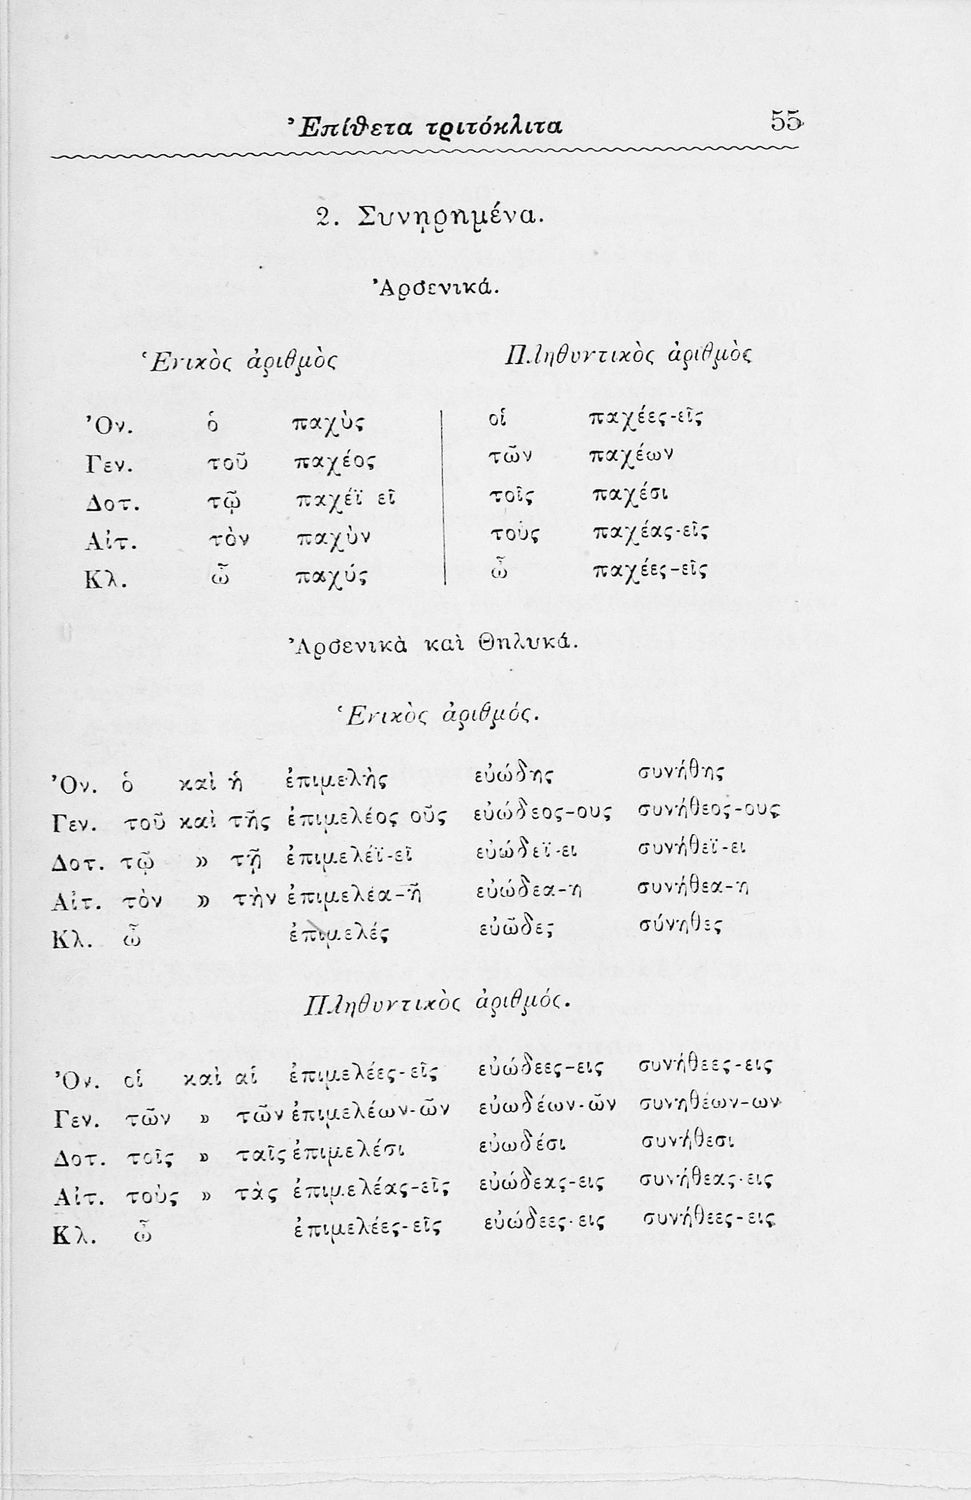 Ἐπίθετα τριτόκλιτα 55
2. Συνῃρημένα.
Ἀρσενικά.
Ἑνικὸς ἀριθμὸς Πληθυντικὸς ἀριθμὸς
Ὀν. ὁ παχὺς οἱ παχέες-εῖς
Γεν. τοῦ παχέος τῶν παχέων
Δοτ. τῷ παχέϊ εῖ τοῖς παχέσι
Αἰτ. τὸν παχὺν τοὺς παχέας-εῖς
Κλ. ὦ παχύς ὦ παχέες-εῖς
Ἀρσενικὰ καὶ Θηλυκά.
Ἑνικὸς ἀριθμός.
Ὀν. ὁ καὶ ἡ ἐπιμελὴς εὐώδης συνήθης
Γεν. τοῦ καὶ τῆς ἐπιμελέος οῦς εὐώδεος-ους συνήθεος-ους
Δοτ. τῷ » τῇ ἐπιμελέϊ-εῖ εὐώδεϊ-ει συνήθεϊ-ει
Αἰτ. τὸν » τὴν ἐπιμελέα-ῆ εὐώδεα-η συνήθεα-η
Κλ. ὦ ἐπιμελές εὐῶδες σύνηθες
Πληθυντικὸς ἀριθμός.
Ὀν. οἱ καὶ αἱ ἐπιμελέες-εῖς εὐώδεες-εις συνήθεες-εις
Γεν. τῶν » τῶν ἐπιμελέων-ῶν εὐωδέων-ῶν συνηθέων-ων
Δοτ. τοῖς » ταῖς ἐπιμελέσι εὐωδέσι συνήθεσι
Αἰτ. τοὺς » τὰς ἐπιμελέας-εῖς εὐώδεας-εις συνήθεας-εις
Κλ. ὦ ἐπιμελέες-εῖς εὐώδεες-εις συνήθεες-εις